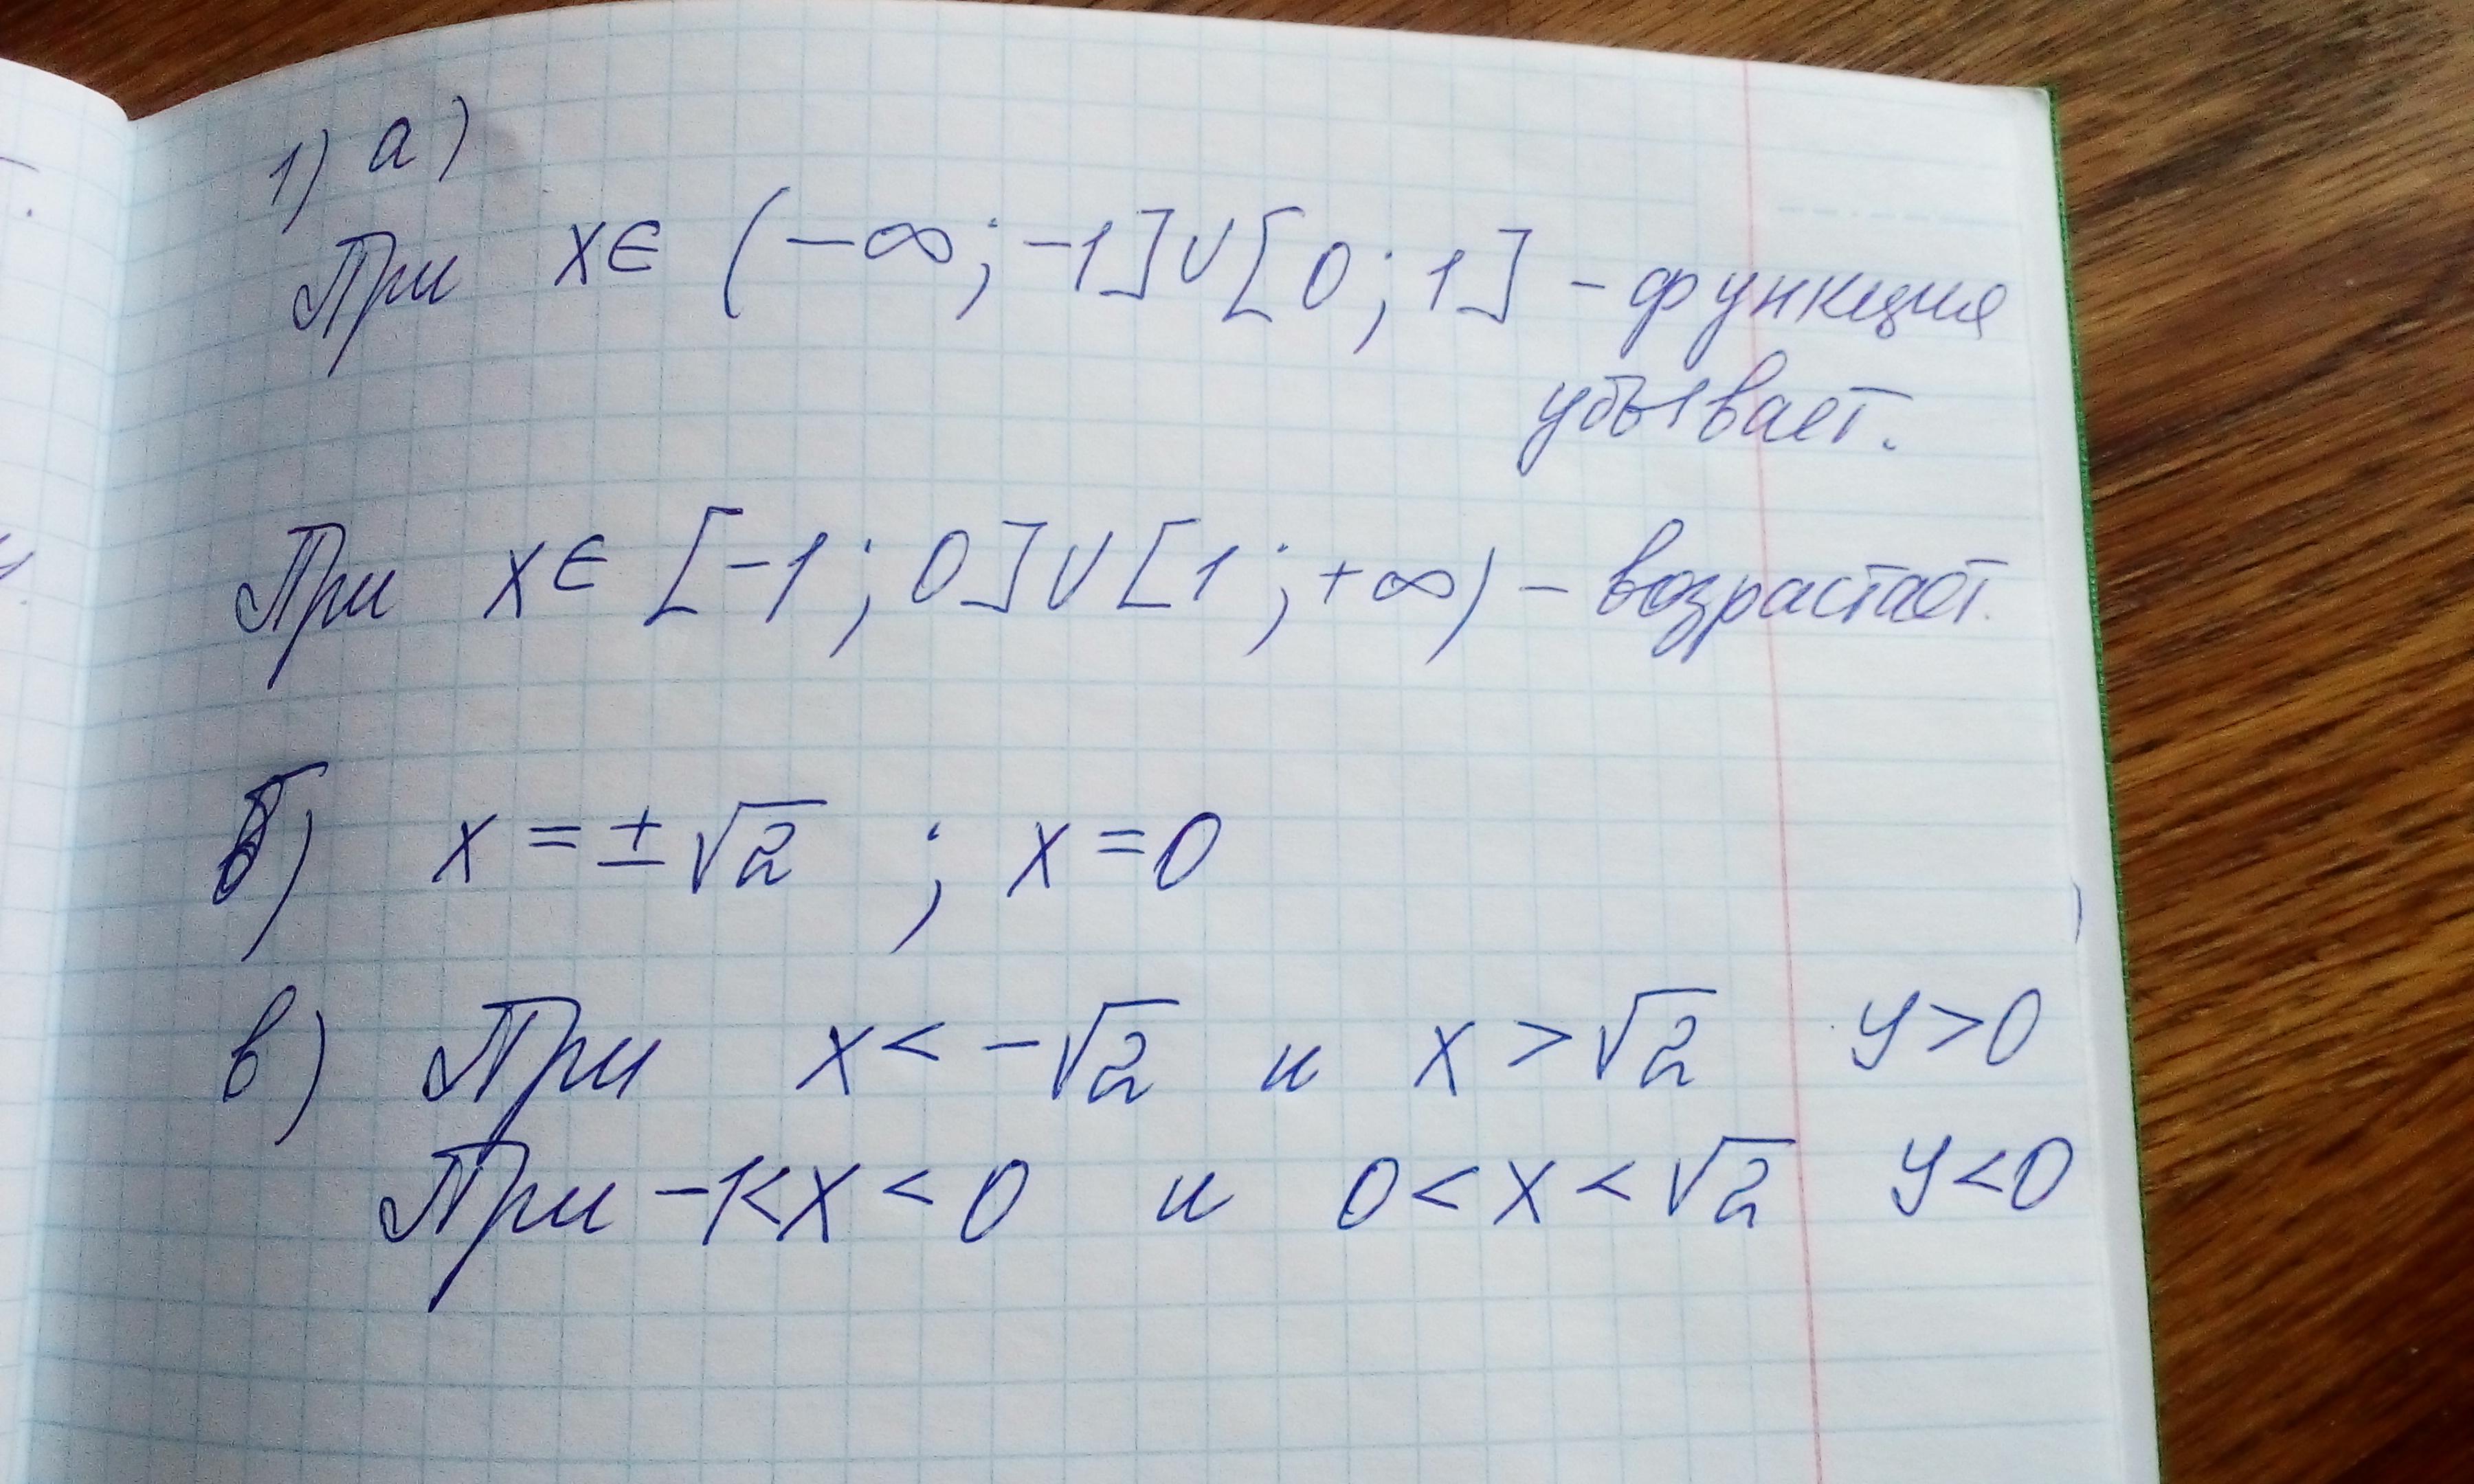 1) а)
При x∈ (-∞; -1]∪[0; 1] - функция
убывает.
При x∈ [-1; 0]∪[1; +∞) - возрастает.
б) x = ±√2 ; x = 0
в) При x < -√2 и x > √2 y > 0
При -1< x < 0 и 0 < x < √2 y < 0